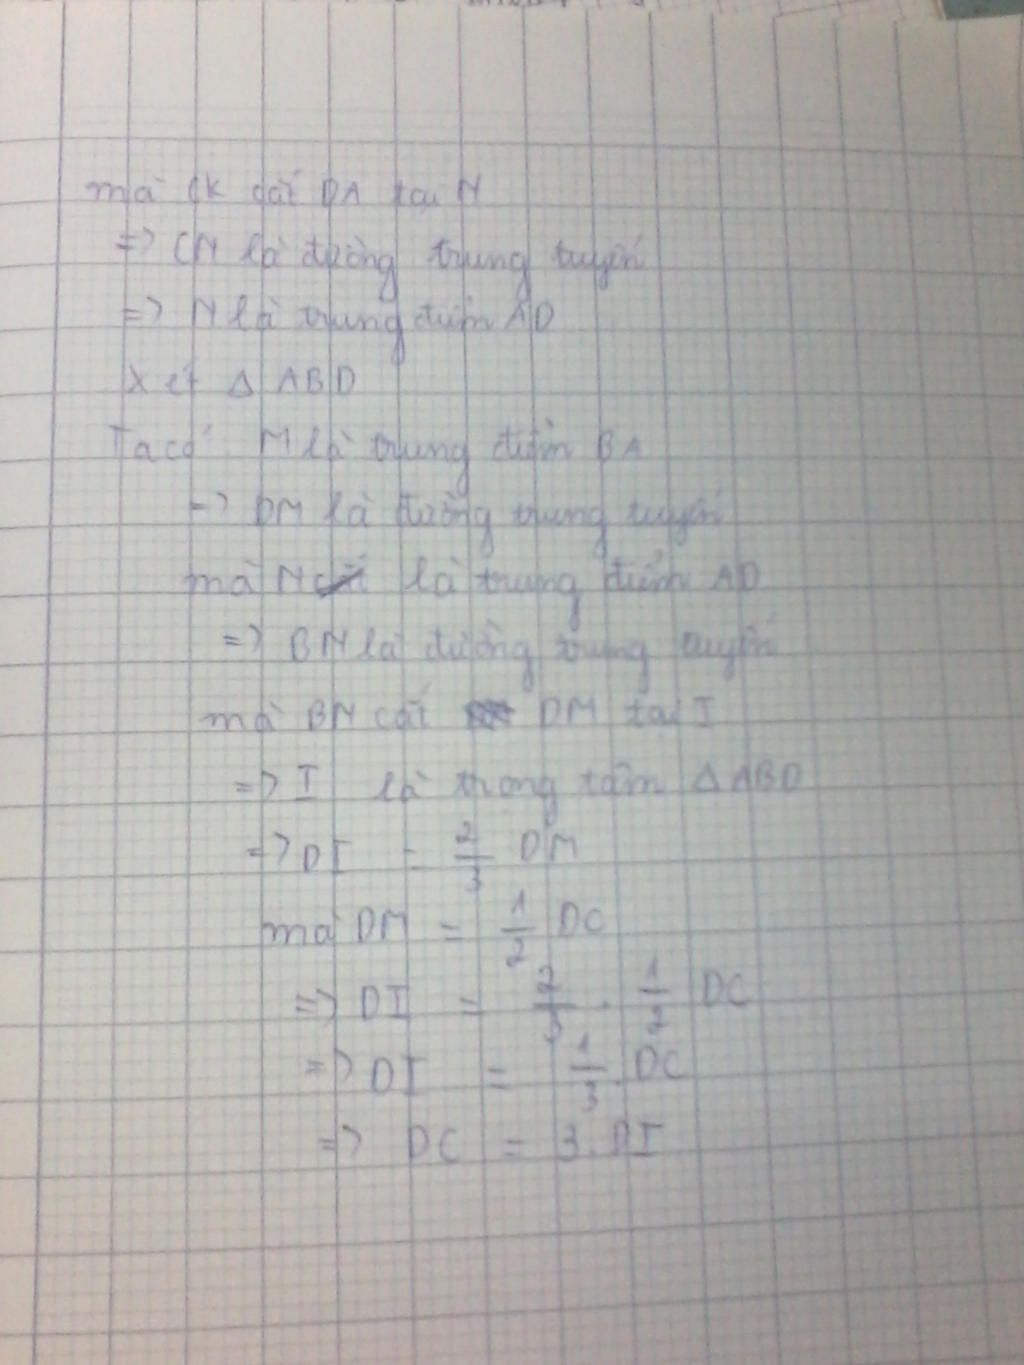 mà CK cắt DA tại N
=> CN là đường trung tuyến
=> N là trung điểm AD
Xét Δ ABD
Ta có: M là trung điểm BA
=> DM là đường trung tuyến
mà N là trung điểm AD
=> BN là đường trung tuyến
mà BN cắt DM tại I
=> I là trọng tâm Δ ABD
=> DI = 2/3 DM
mà DM = 1/2 DC
=> DI = 2/3 . 1/2 DC
=> DI = 1/3 . DC
=> DC = 3. DI